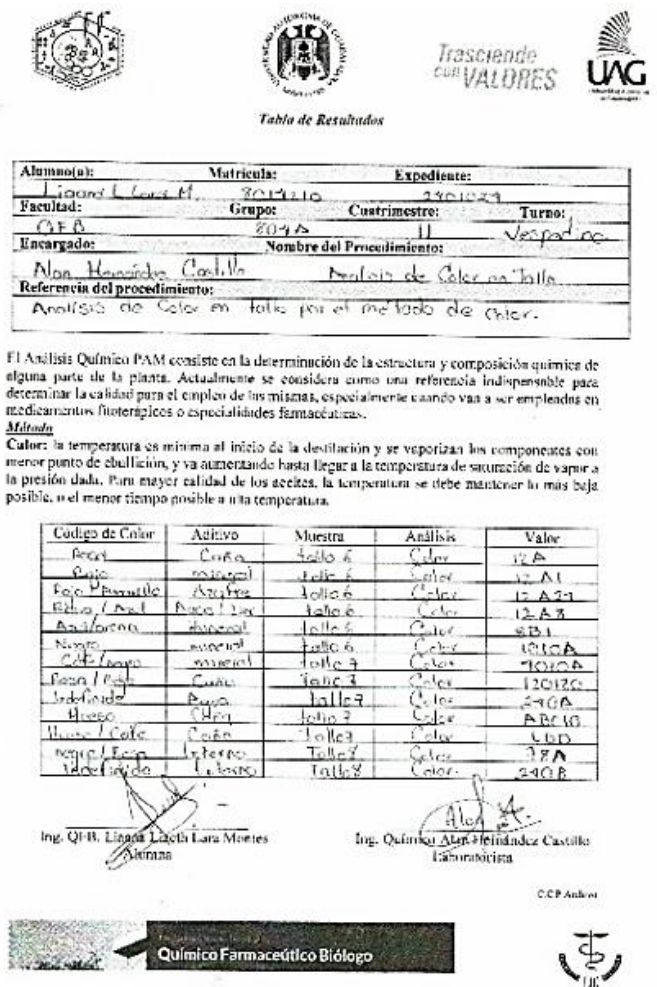 Trasciende
con VALORES
UAG
Tabla de Resultados
Alumno(a): Matrícula: Expediente:
Liliana L Lara M. 8014210
Facultad: Grupo: Cuatrimestre: Turno:
QFB 804A II Vespertino
Encargado: Nombre del Procedimiento:
Alan Hernández Castillo Analisis de Color en Tallo
Referencia del procedimiento:
Analisis de Color en tallo por el metodo de calor.
El Análisis Químico PAM consiste en la determinación de la estructura y composición química de
alguna parte de la planta. Actualmente se considera como una referencia indispensable para
determinar la calidad para el empleo de las mismas, especialmente cuando van a ser empleadas en
medicamentos fitoterápicos o especialidades farmacéuticas.
Método
Calor: la temperatura es mínima al inicio de la destilación y se vaporizan los componentes con
menor punto de ebullición, y va aumentando hasta llegar a la temperatura de saturación de vapor a
la presión dada. Para mayor calidad de los aceites, la temperatura se debe mantener lo más baja
posible, o el menor tiempo posible a alta temperatura.
Código de Color Aditivo Muestra Análisis Valor
Caña tallo 6 Color 12A
Rojo mineral tallo 6 Color 12A1
Rojo Amarillo Azufre tallo 6 Color
/ Azul tallo 6 Color 12A8
Azul/arena mineral tallo 6 Color 8B1
Negro mineral tallo 6 Color 1010A
Café/negro mineral tallo 7 Color 9010A
Rosa / Rojo Caña Tallo 7 Color 12012C
Indefinido Agua tallo 7 Color 240A
Hueso tallo 7 Color ABC10
Hueso / Café Caña Tallo 7 Color
negro / Rosa Interno Tallo 8 Color 78A
Indefinido Interno Tallo 8 Color 240B
Ing. QFB. Lizeth Lara Montes
Alumna
Ing. Químico Alan Hernández Castillo
Laboratorista
C.C.P Archivo
Químico Farmaceútico Biólogo